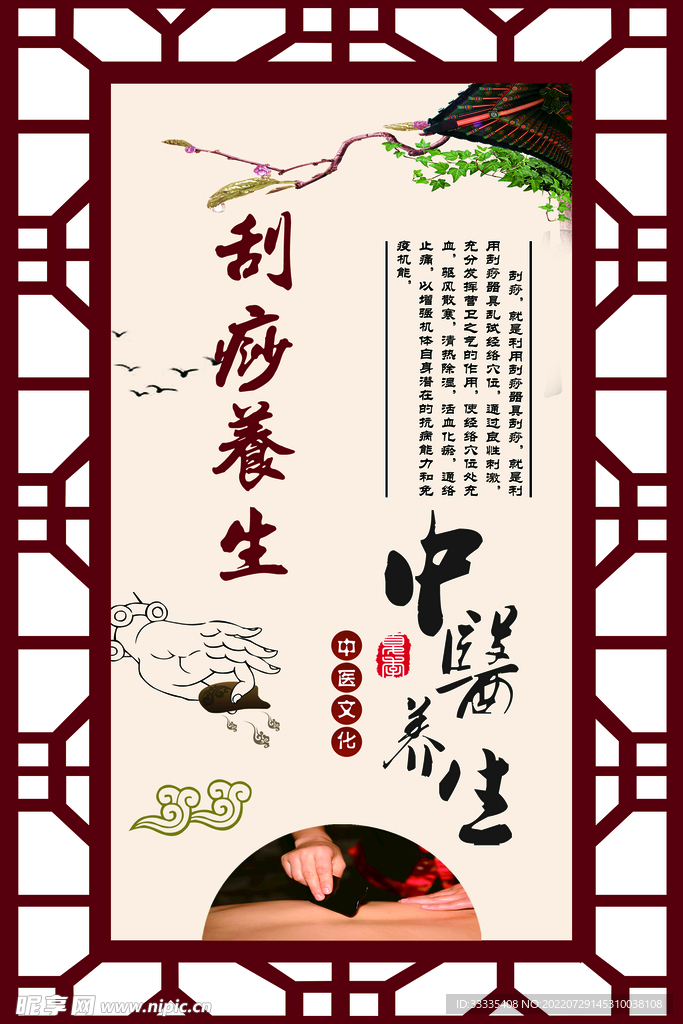 刮痧養生
刮痧，就是利用刮痧器具刮痧，就是利
用刮痧器具乱试经络穴位，通过良性刺激，
充分发挥营卫之气的作用，使经络穴位处充
血，驱风散寒，清热除湿，活血化瘀，通络
止痛，以增强机体自身潜在的抗病能力和免
疫机能，
中醫养生
中医文化
昵享网 www.nipic.cn
ID:33335408 NO:20220729145310038108